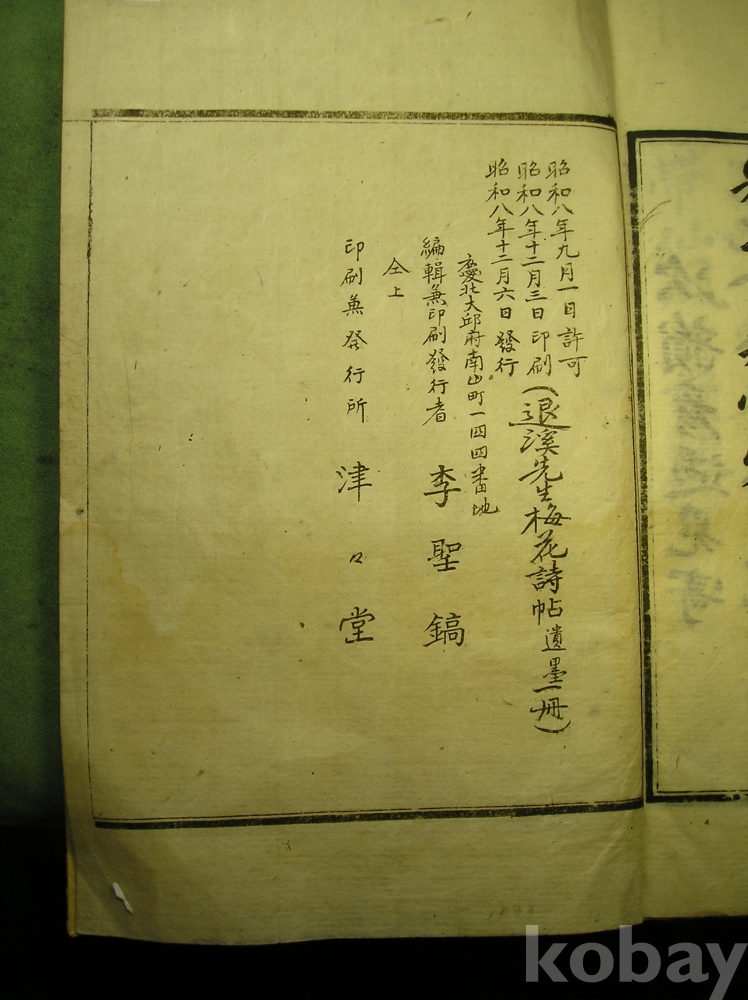 昭和八年九月一日許可
昭和八年十二月三日印刷
昭和八年十二月六日發行
(退溪先生梅花詩帖遺墨一冊)
慶北大邱府南山町一四四番地
編輯兼印刷發行者 李聖鎬
仝上
印刷兼発行所 津々堂
kobay